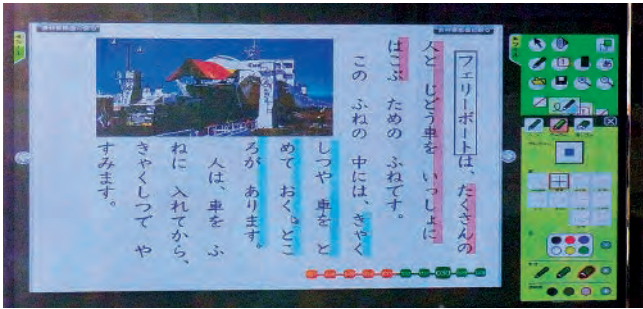 フェリーボートは、たくさんの
人と じどう車を いっしょに
はこぶ ための ふねです。
この ふねの 中には、きゃく
しつや 車を と
めて おく。とこ
ろが あります。
人は、車を ふ
ねに 入れてから、
きゃくしつで や
すみます。